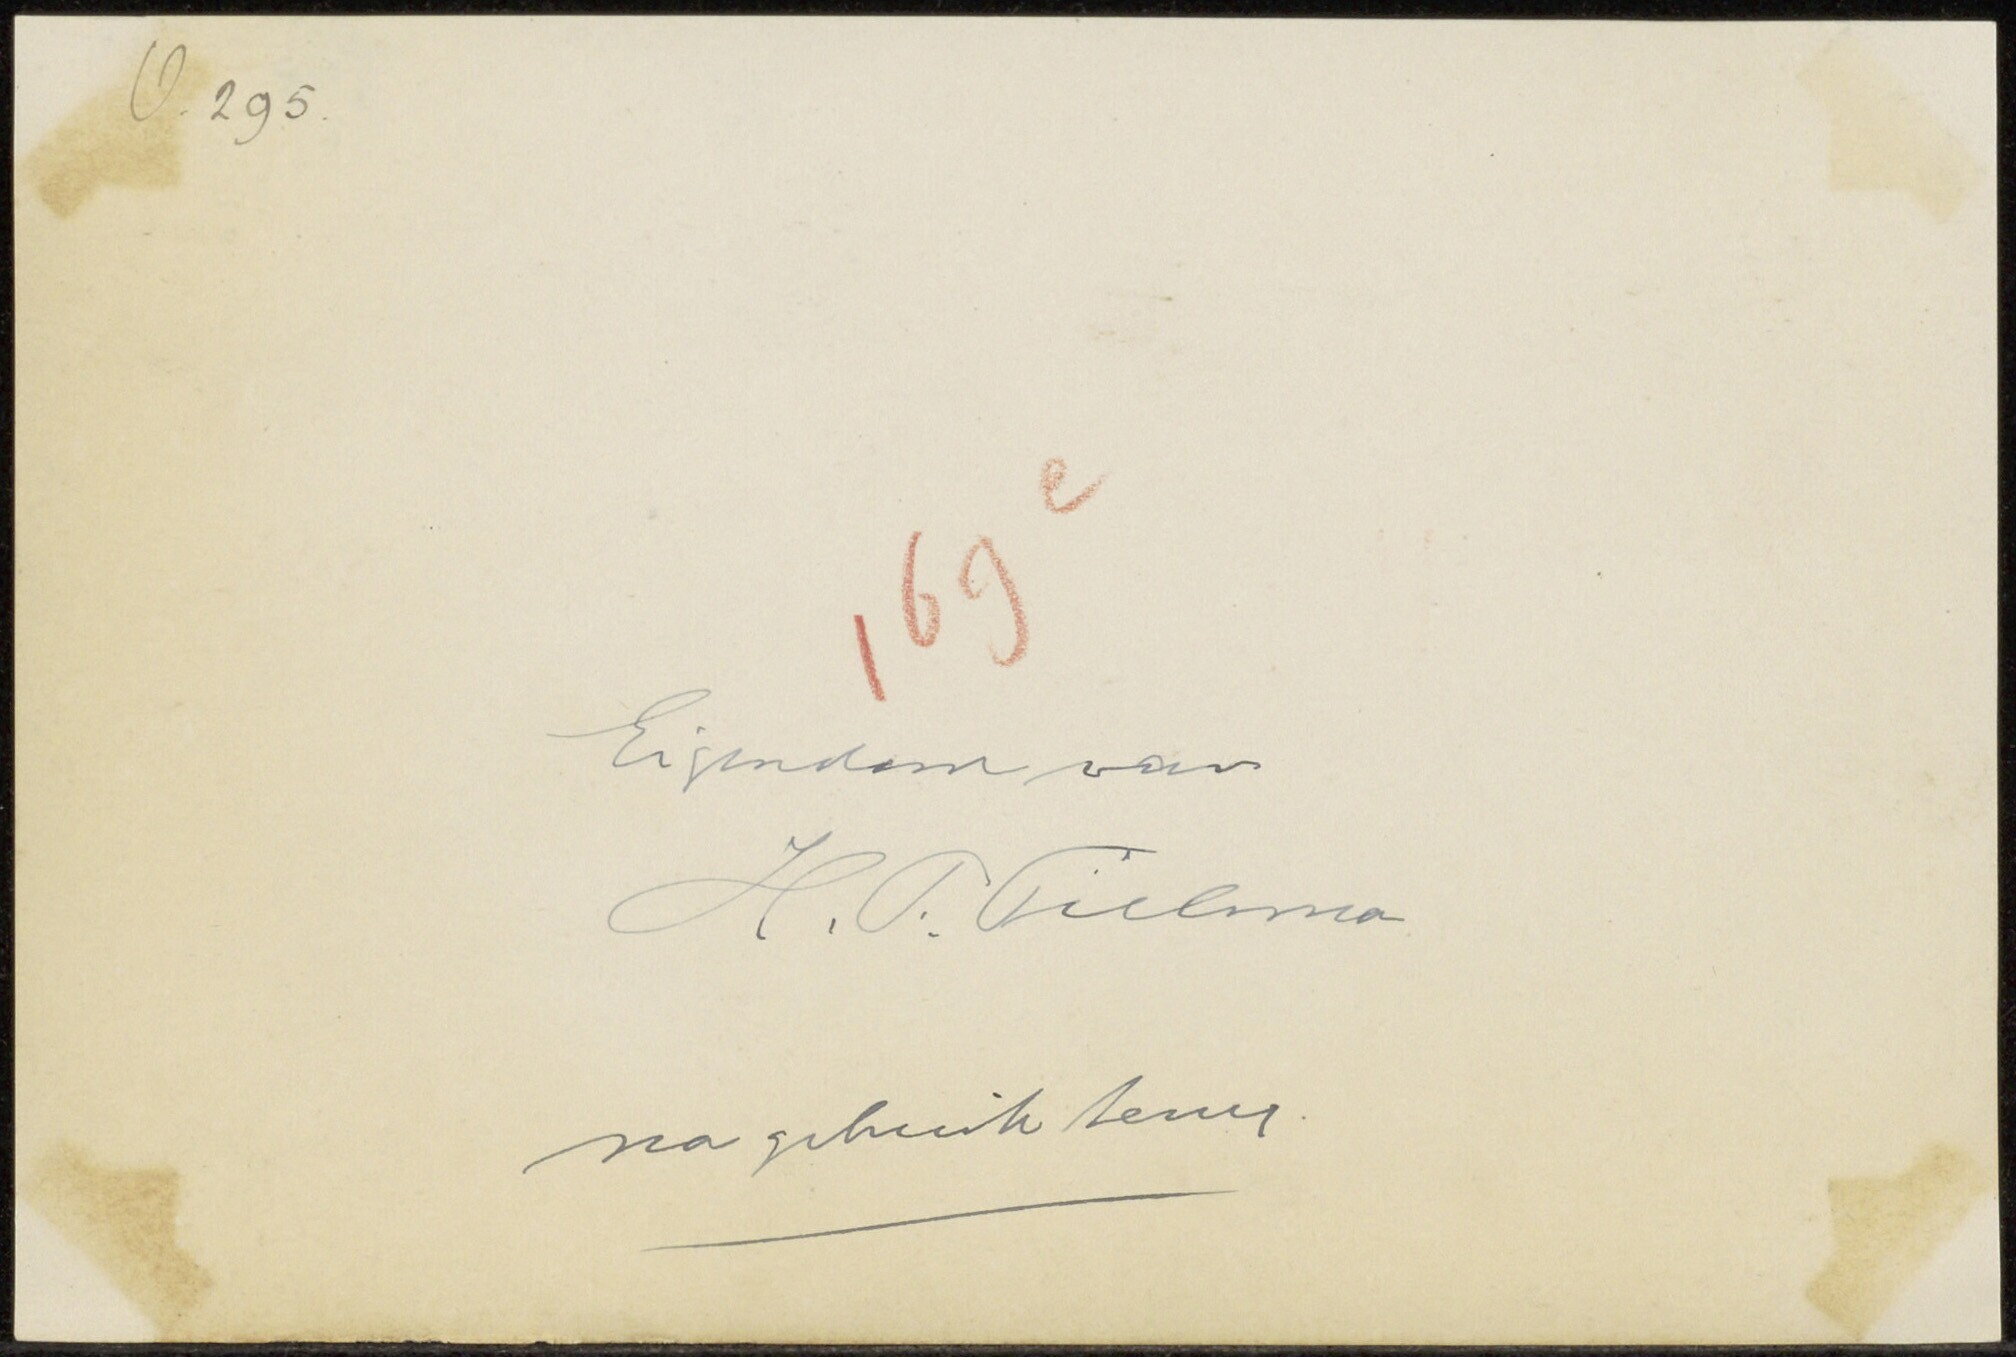 O. 295.
169e
Eigendom van
H. T. Tielema
na gebruik terug.